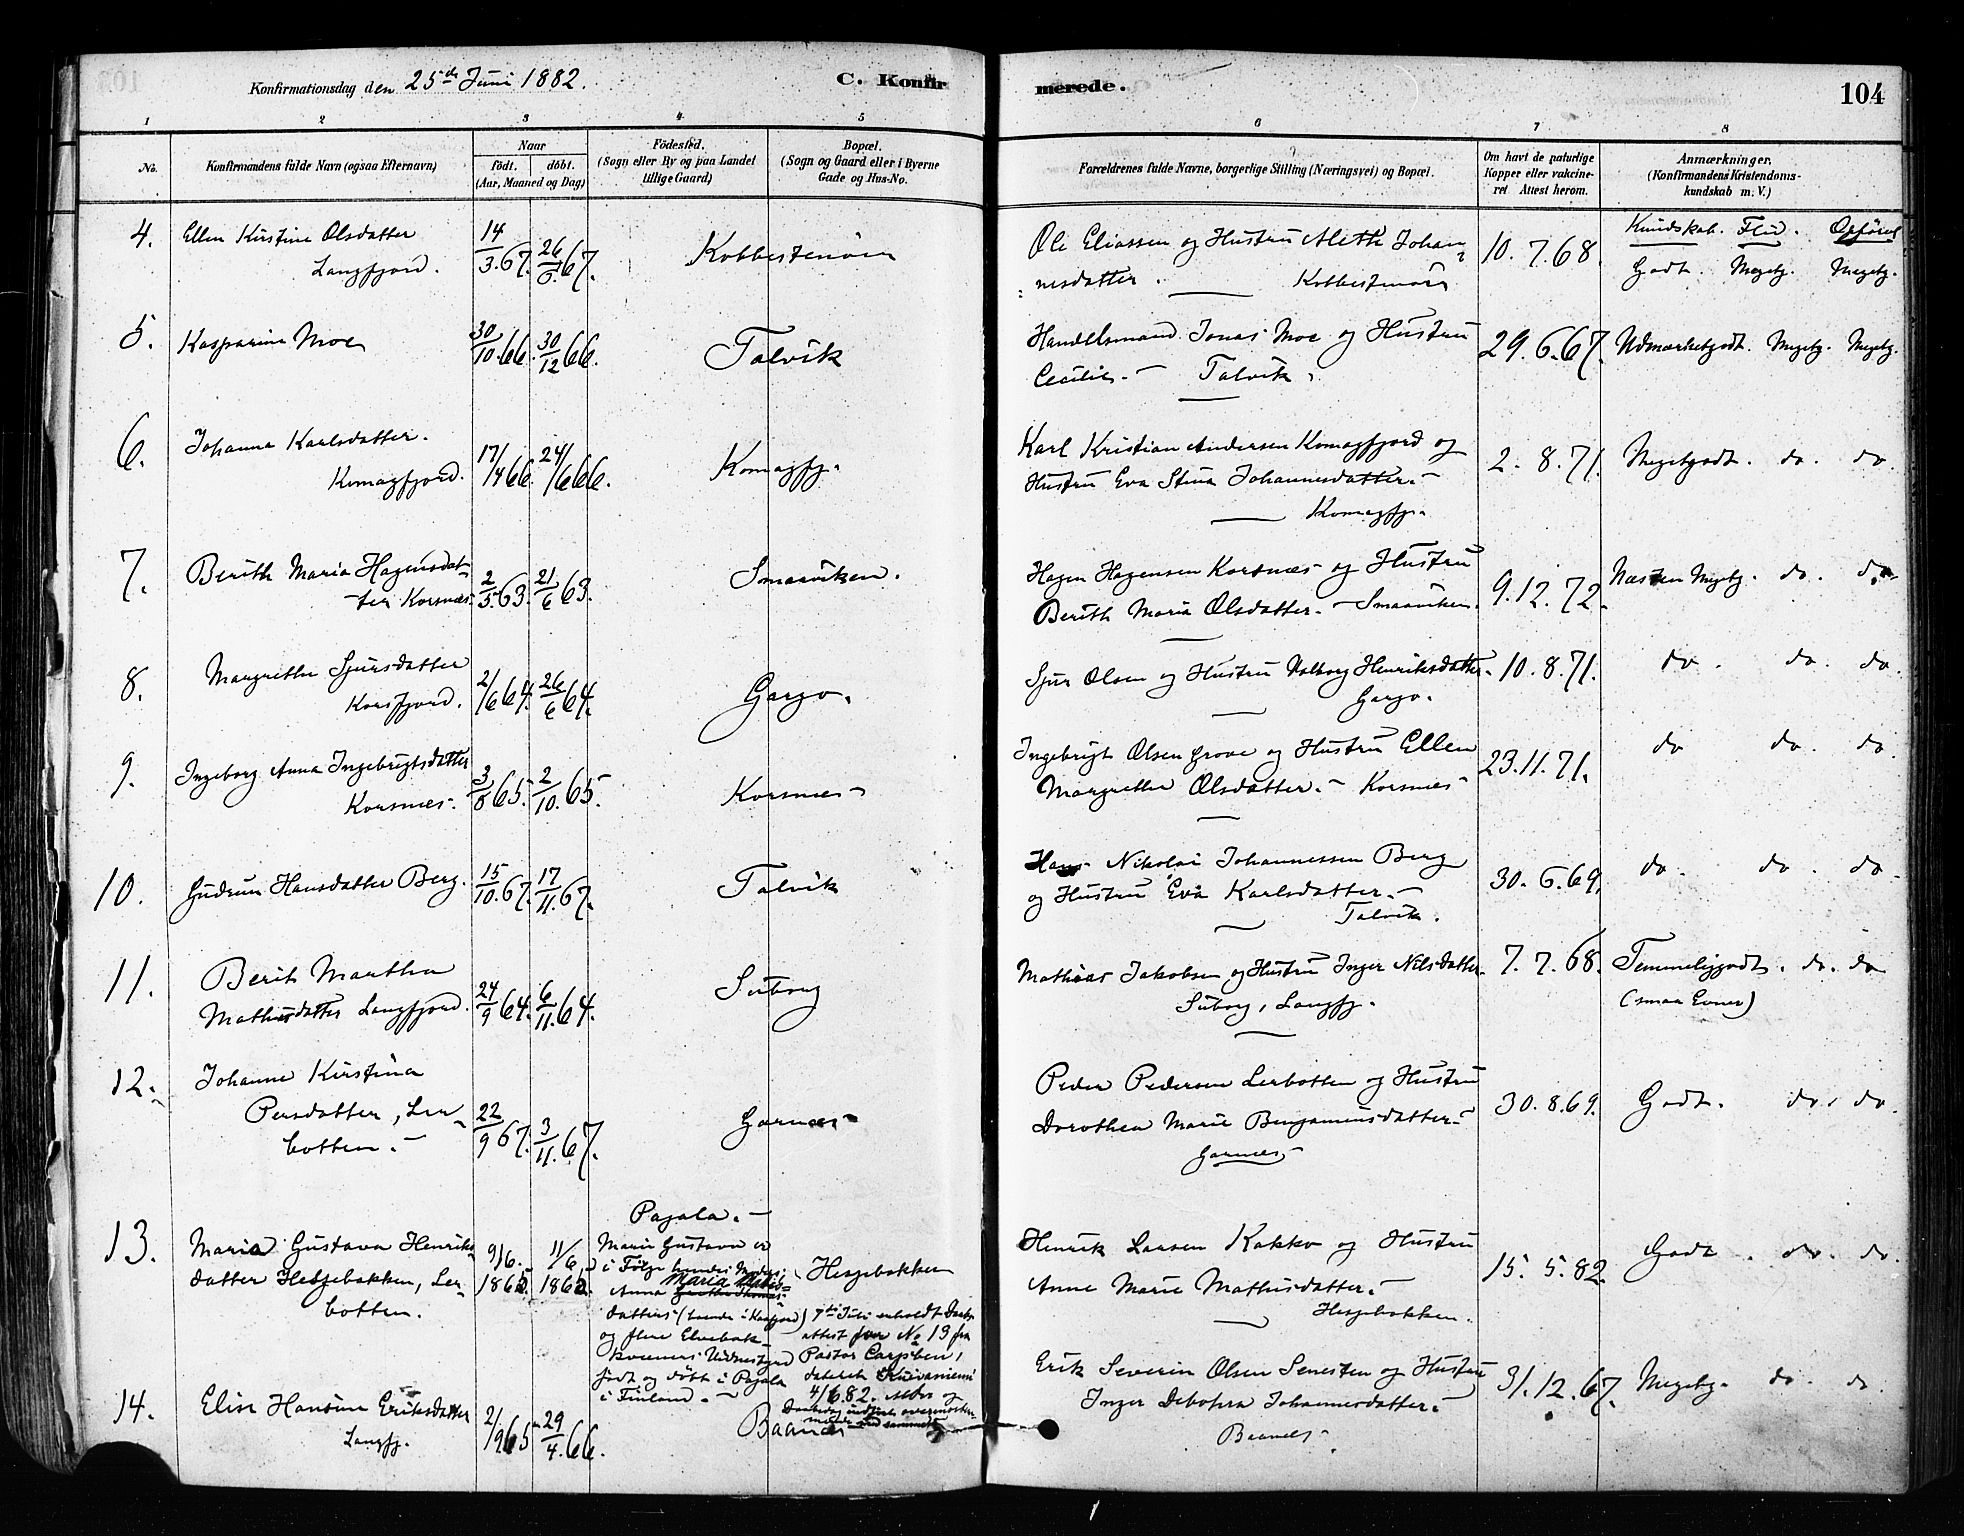 Konfirmationsdag den 25de Juni 1882.
C. Konfir
merede.
104
1 2 3 4 5 6 7 8
No.
Konfirmandens fulde Navn (ogsaa Efternavn)
Naar
födt. döbt.
(Aar, Maaned og Dag)
Födested.
(Sogn eller By og paa Landet
tillige Gaard)
Bopæl.
(Sogn og Gaard eller i Byerne
Gade og Hus-No.
Forældrenes fulde Navne, borgerlige Stilling (Næringsvei) og Bopæl.
Om havt de naturlige
Kopper eller vakcine-
ret Attest herom.
Anmærkninger.
(Konfirmandens Kristendoms-
kundskab m. V.)
Kundskab. Flid. Opförsel
4. Ellen Kirstine Olsdatter
Langfjord.
14/3.67. 26/5.67.
Kobbestenören
Ole Eliassen og Hustru Aleth Johan-
nesdatter. — Kobbestenören
10.7.68.
Godt. Megetg. Megetg.
5. Kasparine Moe
30/10.66. 30/12 66.
Talvik
Handelsmand Jonas Moe og Hustru
Cecilie. — Talvik.
29.6.67.
Udmærketgodt. Megetg. Megetg.
6. Johanna Karlsdatter.
Komagfjord.
17/4 66. 24/6 66.
Komagfj.
Karl Kristian Andersen Komagfjord og
Hustru Eva Stina Johannesdatter. —
Komagfj.
2.8.71.
Megetgodt. do. do.
7. Berith Maria Hagensdat-
ter Korsnæs.
2/5.63. 21/6 63.
Smaaviken.
Hagen Hagensen Korsnæs og Hustru
Berith Maria Olsdatter. — Smaaviken.
9.12.72.
Næsten Megetg. do. do.
8. Margrethe Sjursdatter
Korsfjord.
2/6 64. 26/6 64.
Gargo.
Sjur Olsen og Hustru Valborg Henriksdatter.
Gargo.
10.8.71.
do. do. do.
9. Ingeborg Anna Ingebrigtsdatter
Korsnæs.
3/8 65. 2/10.65.
Korsnæs
Ingebrigt Olsen Grove og Hustru Ellen
Margrethe Olsdatter. — Korsnæs
23.11.71.
do do. do
10. Gudrun Hansdatter Berg.
15/10.67. 17/11.67.
Talvik
Hans Nikolai Johannessen Berg
og Hustru Eva Karlsdatter. —
Talvik.
30.6.69.
do. do. do.
11. Berit Martha
Mathisdatter Langfjord.
24/9 64. 6/11.64.
Suborg
Mathias Jakobsen og Hustru Inger Nilsdatter.
Suborg, Langfj.
7.7.68.
Temmeliggodt. do. do
(smaa Evner)
12. Johanne Kirstina
Persdatter, Ler-
botten. —
22/9 67. 3/11.67.
Garnæs
Peder Pedersen Lerbotten og Hustru
Dorothea Marie Benjaminsdatter. —
Garnæs. —
30.8.69.
Godt. do. do.
13. Maria Gustava Henriks-
datter Hesjebakken, Ler-
botten.
9/6. 1862. 11/6. 1862.
Pajala. —
Marie Gustava er
i Følge hendes Moders
Anna Maria
datters (boende i Kaafjord)
og flere
Vidnesbyrd
født og døbt i Pajala
i Finland. —
Hesjebakken
7de Juli erholdt Daabs-
attest for No 13 fra
Pastor
dateret
4/6.82.
Henrik Larsen Kakko og Hustru
Anne Marie Mathisdatter. —
Hesjebakken.
15.5.82.
Godt. do. do.
14. Elise Hansine Eriksdatter
Langfj.
2/9 65 29/4.66.
Baanæs
Erik Severin Olsen Senesten og Hustru
Inger Debohra Johannesdatter. —
Baanæs. —
31.12.67.
Megetg. do. do.